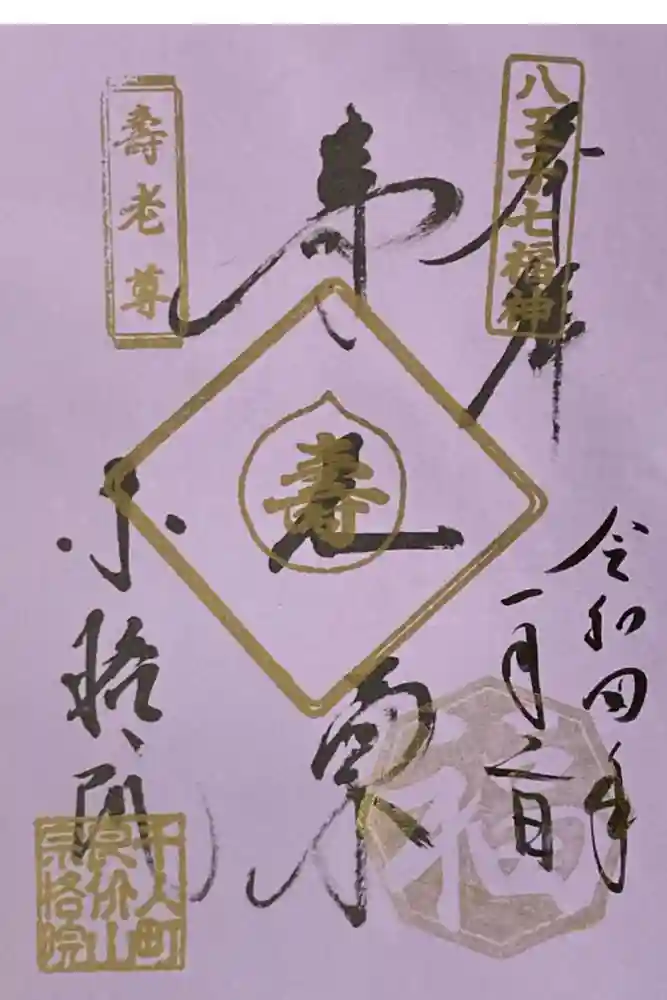 八王子七福神
奉拝
令和四年
一月二日
壽
福
壽老尊
宗格院
千人町
良价山
宗格院